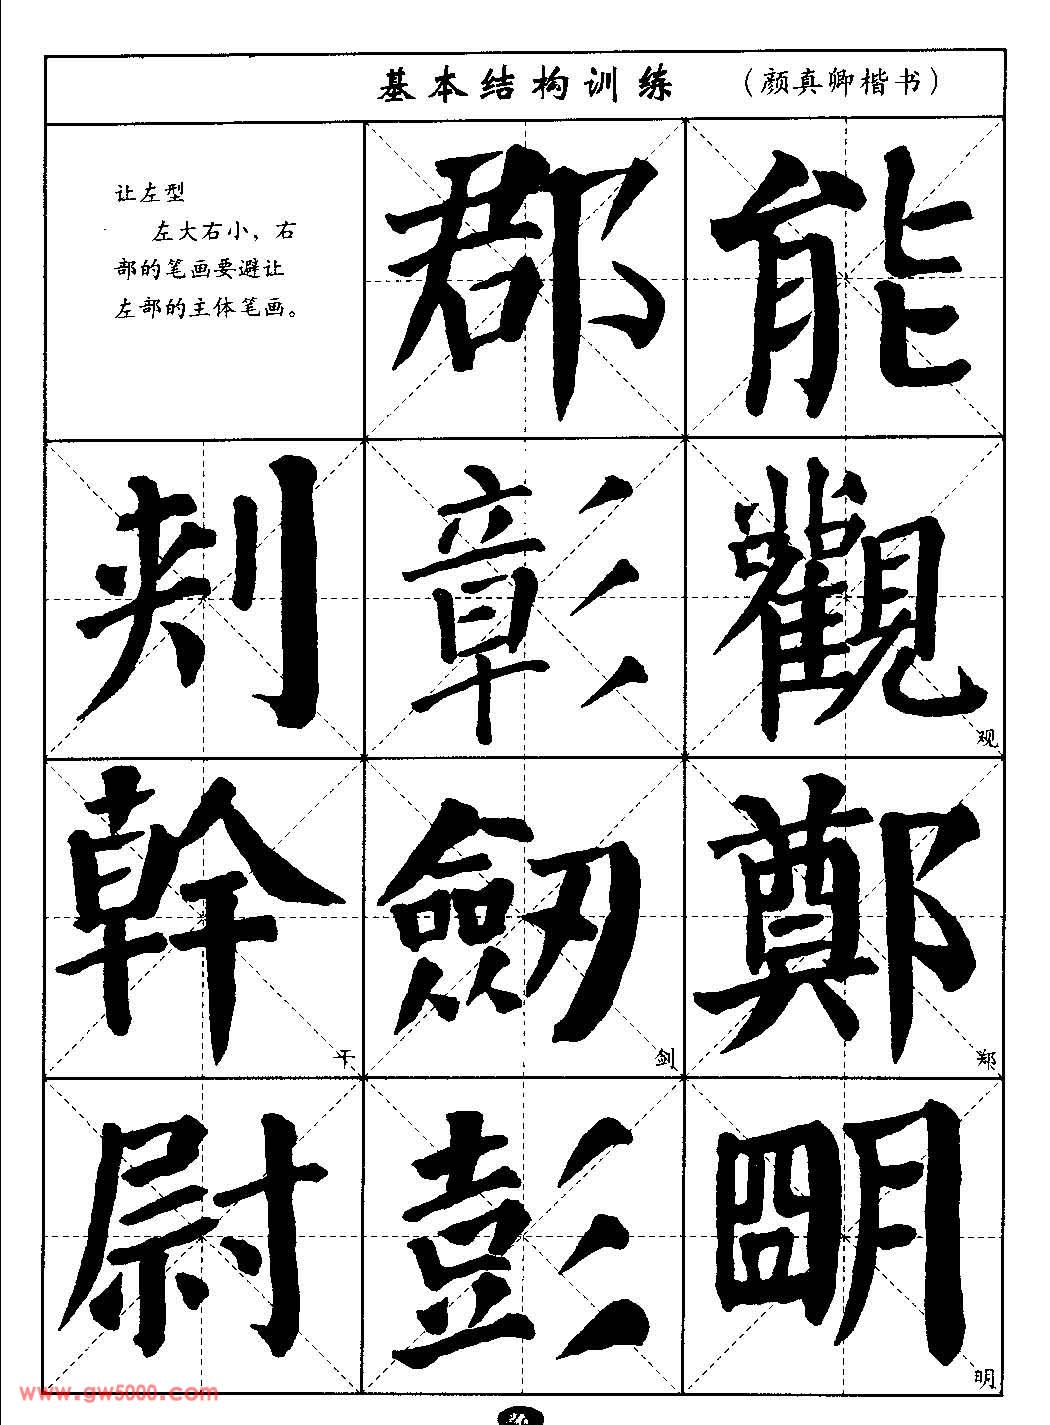 基本结构训练 （颜真卿楷书）
让左型
左大右小，右
部的笔画要避让
左部的主体笔画。
郡 能
刾 彰 觀 观
幹 干 劒 剑 鄭 郑
尉 彭 明 明
www.gw5000.com